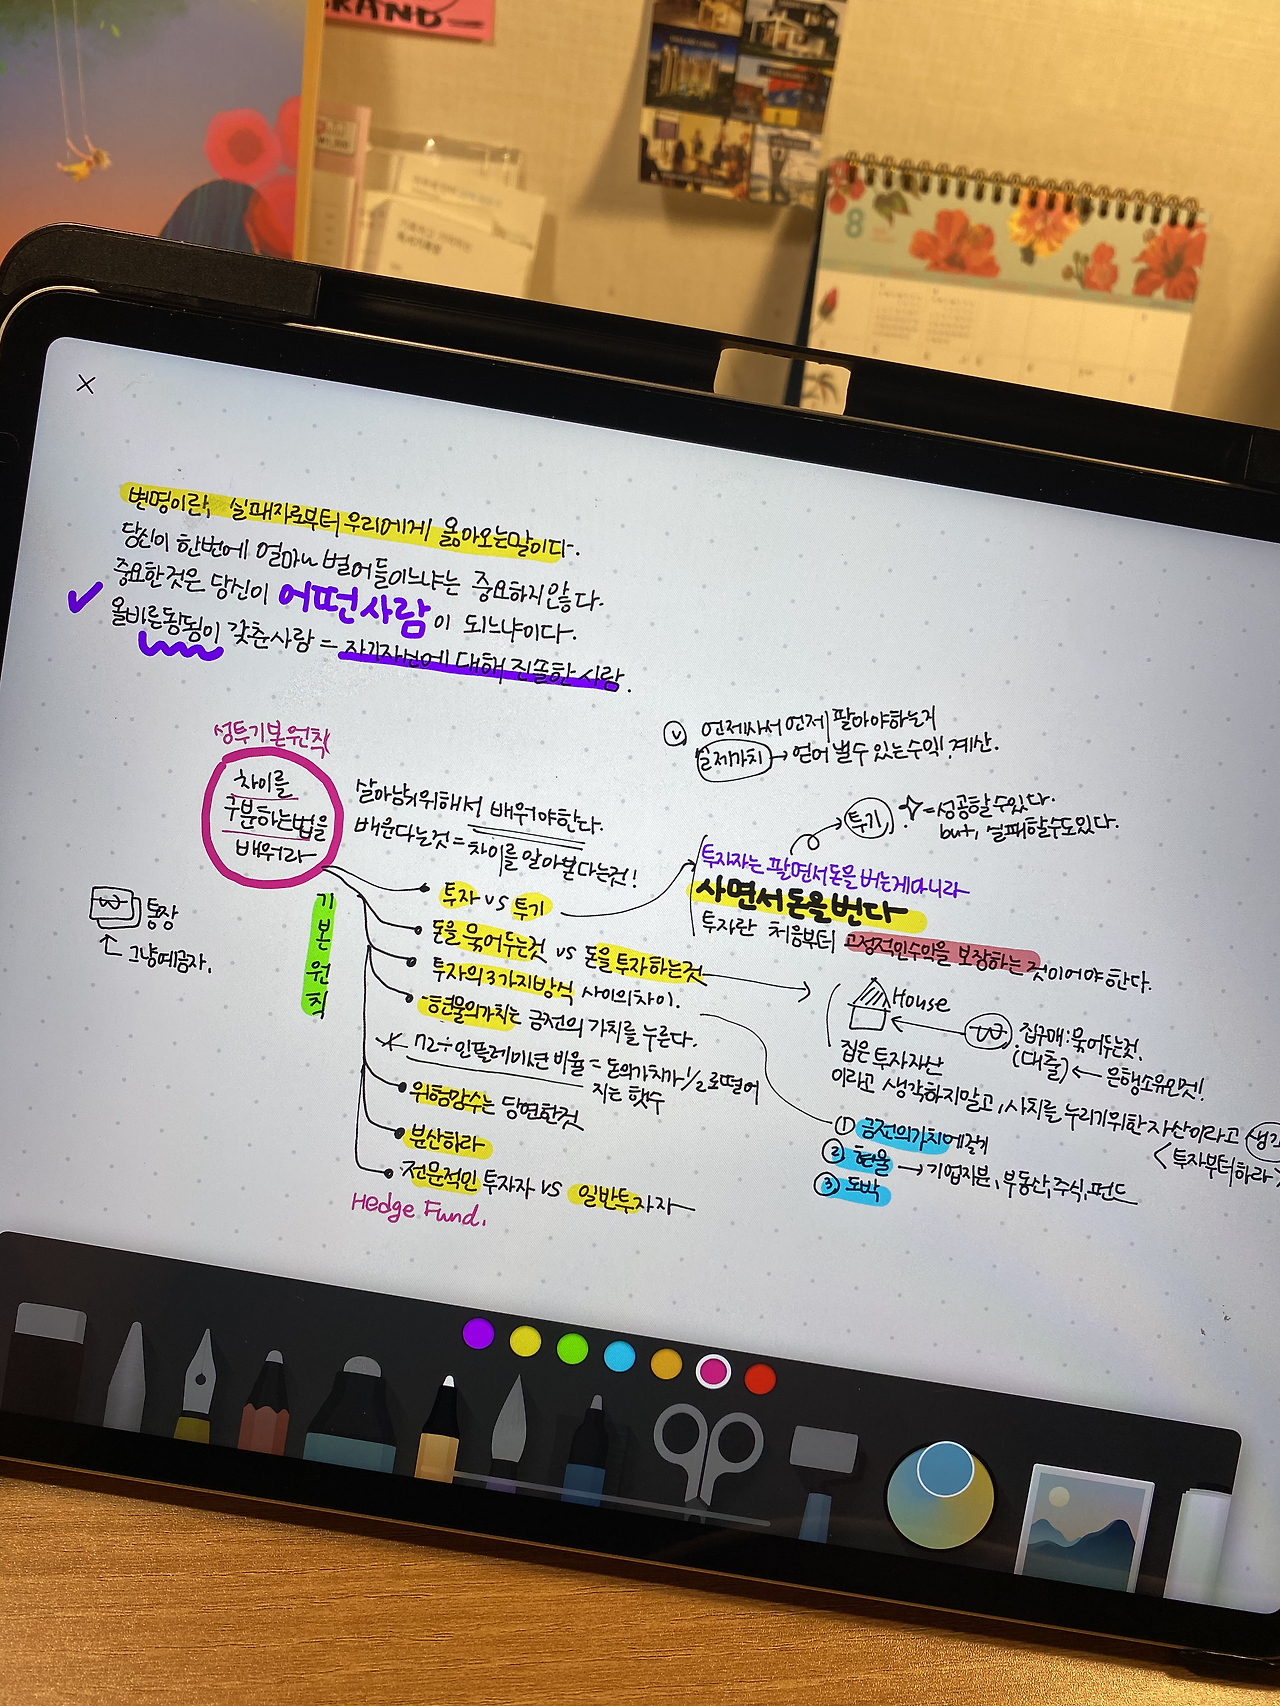 BRAND
8
변명이란, 실패자로부터 우리에게 옮아오는말이다.
당신이 한번에 얼마나 벌어들이느냐는 중요하지않다.
중요한것은 당신이 어떤사람이 되느냐이다.
올바른 갖춘사람 = 자기자신에 대해 진실한 사람.
성투기본원칙
차이를
구분하는법을
배워라
살아남기위해서 배워야한다.
배운다는것 = 차이를 알아본다는것!
기본원칙
통장
그냥예금자.
투자 vs 투기
돈을 묶어두는것 vs 돈을 투자하는것
투자의 3가지방식 사이의차이.
현물의가치는 금전의 가치를 누른다.
72÷인플레이션 비율 = 돈의가치가 1/2로떨어
지는 햇수
위험감수는 당연한것
분산하라
전문적인 투자자 vs 일반투자자
Hedge Fund.
언제사서 언제 팔아야하는지
실제가치 → 얻어 낼수 있는수익! 계산.
투기
= 성공할수있다.
but, 실패할수도있다.
투자자는 팔면서돈을 버는게아니라
사면서돈을번다
투자란 처음부터 고정적인수익을 보장하는 것이어야 한다.
House
집구매:묶어두는것.
(대출) ← 은행소유인것!
집은 투자자산
이라고 생각하지말고, 사치를 누리기위한자산이라고 생각
<투자부터하라>
① 금전의가치에걸기
② 현물 → 기업지분, 부동산, 주식, 펀드
③ 도박